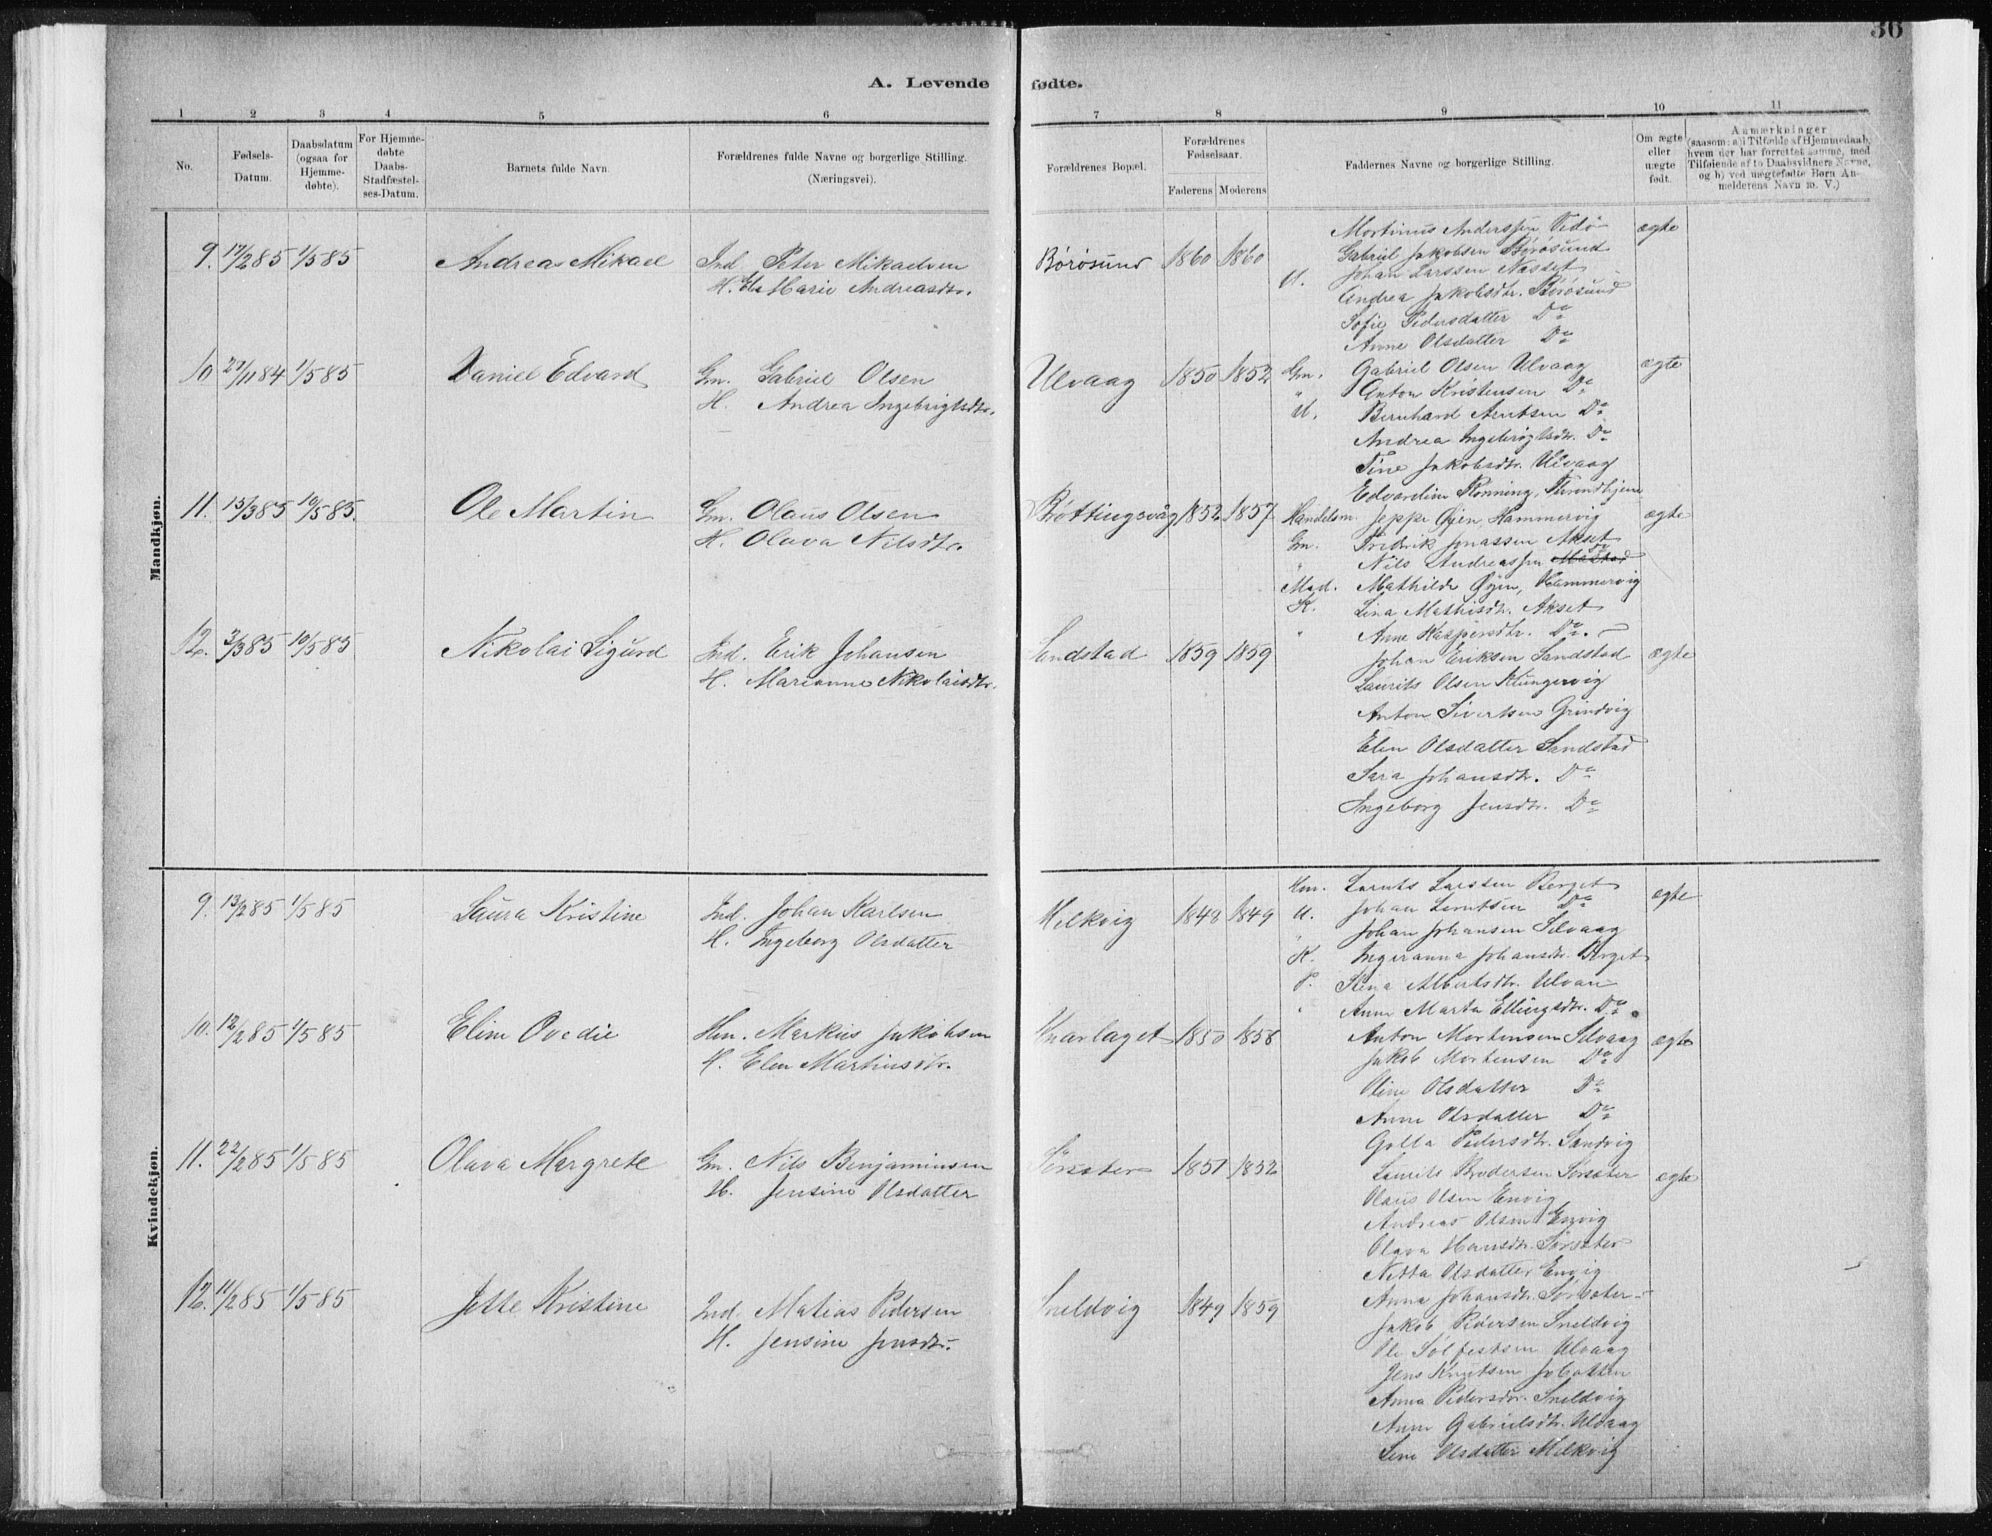 36
A. Levende fødte.
1 2 3 4 5 6 7 8 9 10 11
No.
Fødsels-Datum.
Daabsdatum (ogsaa for Hjemme-døbte).
For Hjemme-døbte Daabs-Stadfæstel-ses-Datum.
Barnets fulde Navn.
Forældrenes fulde Navne og borgerlige Stilling. (Næringsvei).
Forældrenes Bopæl.
Forældrenes Fødselsaar.
Faderens Moderens
Faddernes Navne og borgerlige Stilling.
Om ægte eller uægte født.
Anmærkninger (saasom: a) i Tilfælde af Hjemmedaab, hvem der har forrettet samme, med Tilføiende af to Daabsvidners Navne, og b) ved uægtefødte Børn Anmelderens Navn m. V.)
Mandkjøn.
9. 17/2 85 1/5 85 Andreas Mikael
Ind. Peter Mikaelsen
H. Marie Andreasdtr.
Børøsund 1860 1860 ægte
Mortinus Anderssen Vedø
Gabriel Jakobsen Børøsund
U. Johan Larssen Nasset
Andrea Jakobsdtr. Børøsund
Sofie Pedersdatter Do
Anne Olsdatter Do
10 27/11 84 1/5 85 Daniel Edvard
Gm. Gabriel Olsen
H. Andrea Ingebrigtsdtr.
Ulvaag 1850 1852 ægte
Gm. Gabriel Olsen Ulvaag
" Anton Kristensen Do
U. Bernhard Arntsen Do
Andrea Ingebrigtsdtr. Do
Tine Jakobsdtr. Ulvaag
Edvardine Rønning, Throndhjem
11. 15/3 85 10/5 85. Ole Martin
Gm. Olaus Olsen
H. Olava Nilsdtr.
Bøttingsvåg 1852 1857 ægte
Handelsm. Jeppe Øyen, Hammervig
Gm. Fredrik Jonassen Akset
" Nils Andreassen Do
Mad. Mathilde Øyen, Hammervig
K. Lina Mathisdtr. Akset
" Anne Kaspersdtr. Do.
12. 3/3 85 10/5 85 Nikolai Sigurd
Ind. Erik Johansen
H. Marianne Nikolaisdtr.
Sandstad 1859 1859 ægte
Johan Eriksen Sandstad
Laurits Olsen Klungervig
Anton Sivertsen Grindvig
Elen Olsdatter Sandstad
Sara Johansdtr. Do
Ingeborg Jensdtr. Do
Kvindekjøn.
9. 13/2 85 1/5 85 Laura Kristine
Ind. Johan Karlsen
H. Ingeborg Olsdatter
Melkvig 1848 1849 ægte
Hm. Larssen Berget
U. Johan Do
" Johan Johansen Selvaag
K. Ingeranna Johansdtr. Berget
P. Stena Albertsdtr. Ulvan
" Anne Marta Ellingsdtr. Do.
10. 12/2 85 1/5 85 Eline Ovedie
Hm. Markus Jakobsen
H. Elen Martinusdtr.
Knarlaget 1850 1858 ægte
Anton Mortensen Selvaag
Jakob Mortensen Do
Oline Olsdatter Do
Anne Olsdatter Do
Golla Pedersdtr. Sandvig
11. 22/2 85 1/5 85 Olava Margrete
Gm. Nils Benjaminsen
H. Jensine Olsdatter
Sørsæter 1851 1852 ægte
Laurits Brodersen Sørsæter
Olaus Olsen Envig
Andreas Olsen Envig
Olava Hansdtr. Sørsæter
Netta Olsdatter Envig
Anna Johansdtr. Sørsæter
12. 11/2 85 1/5 85 Jette Kristine
Ind. Matias Pedersen
H. Jensine Jonsdtr.
Sneldvig 1849 1859
Jakob Pedersen Sneldvig
Ole Solfestsen Ulvaag
Jens Knutsen
Anna Pedersdtr. Sneldvig
Anne Gabrielsdtr. Ulvaag
Lene Olsdatter Melkvig